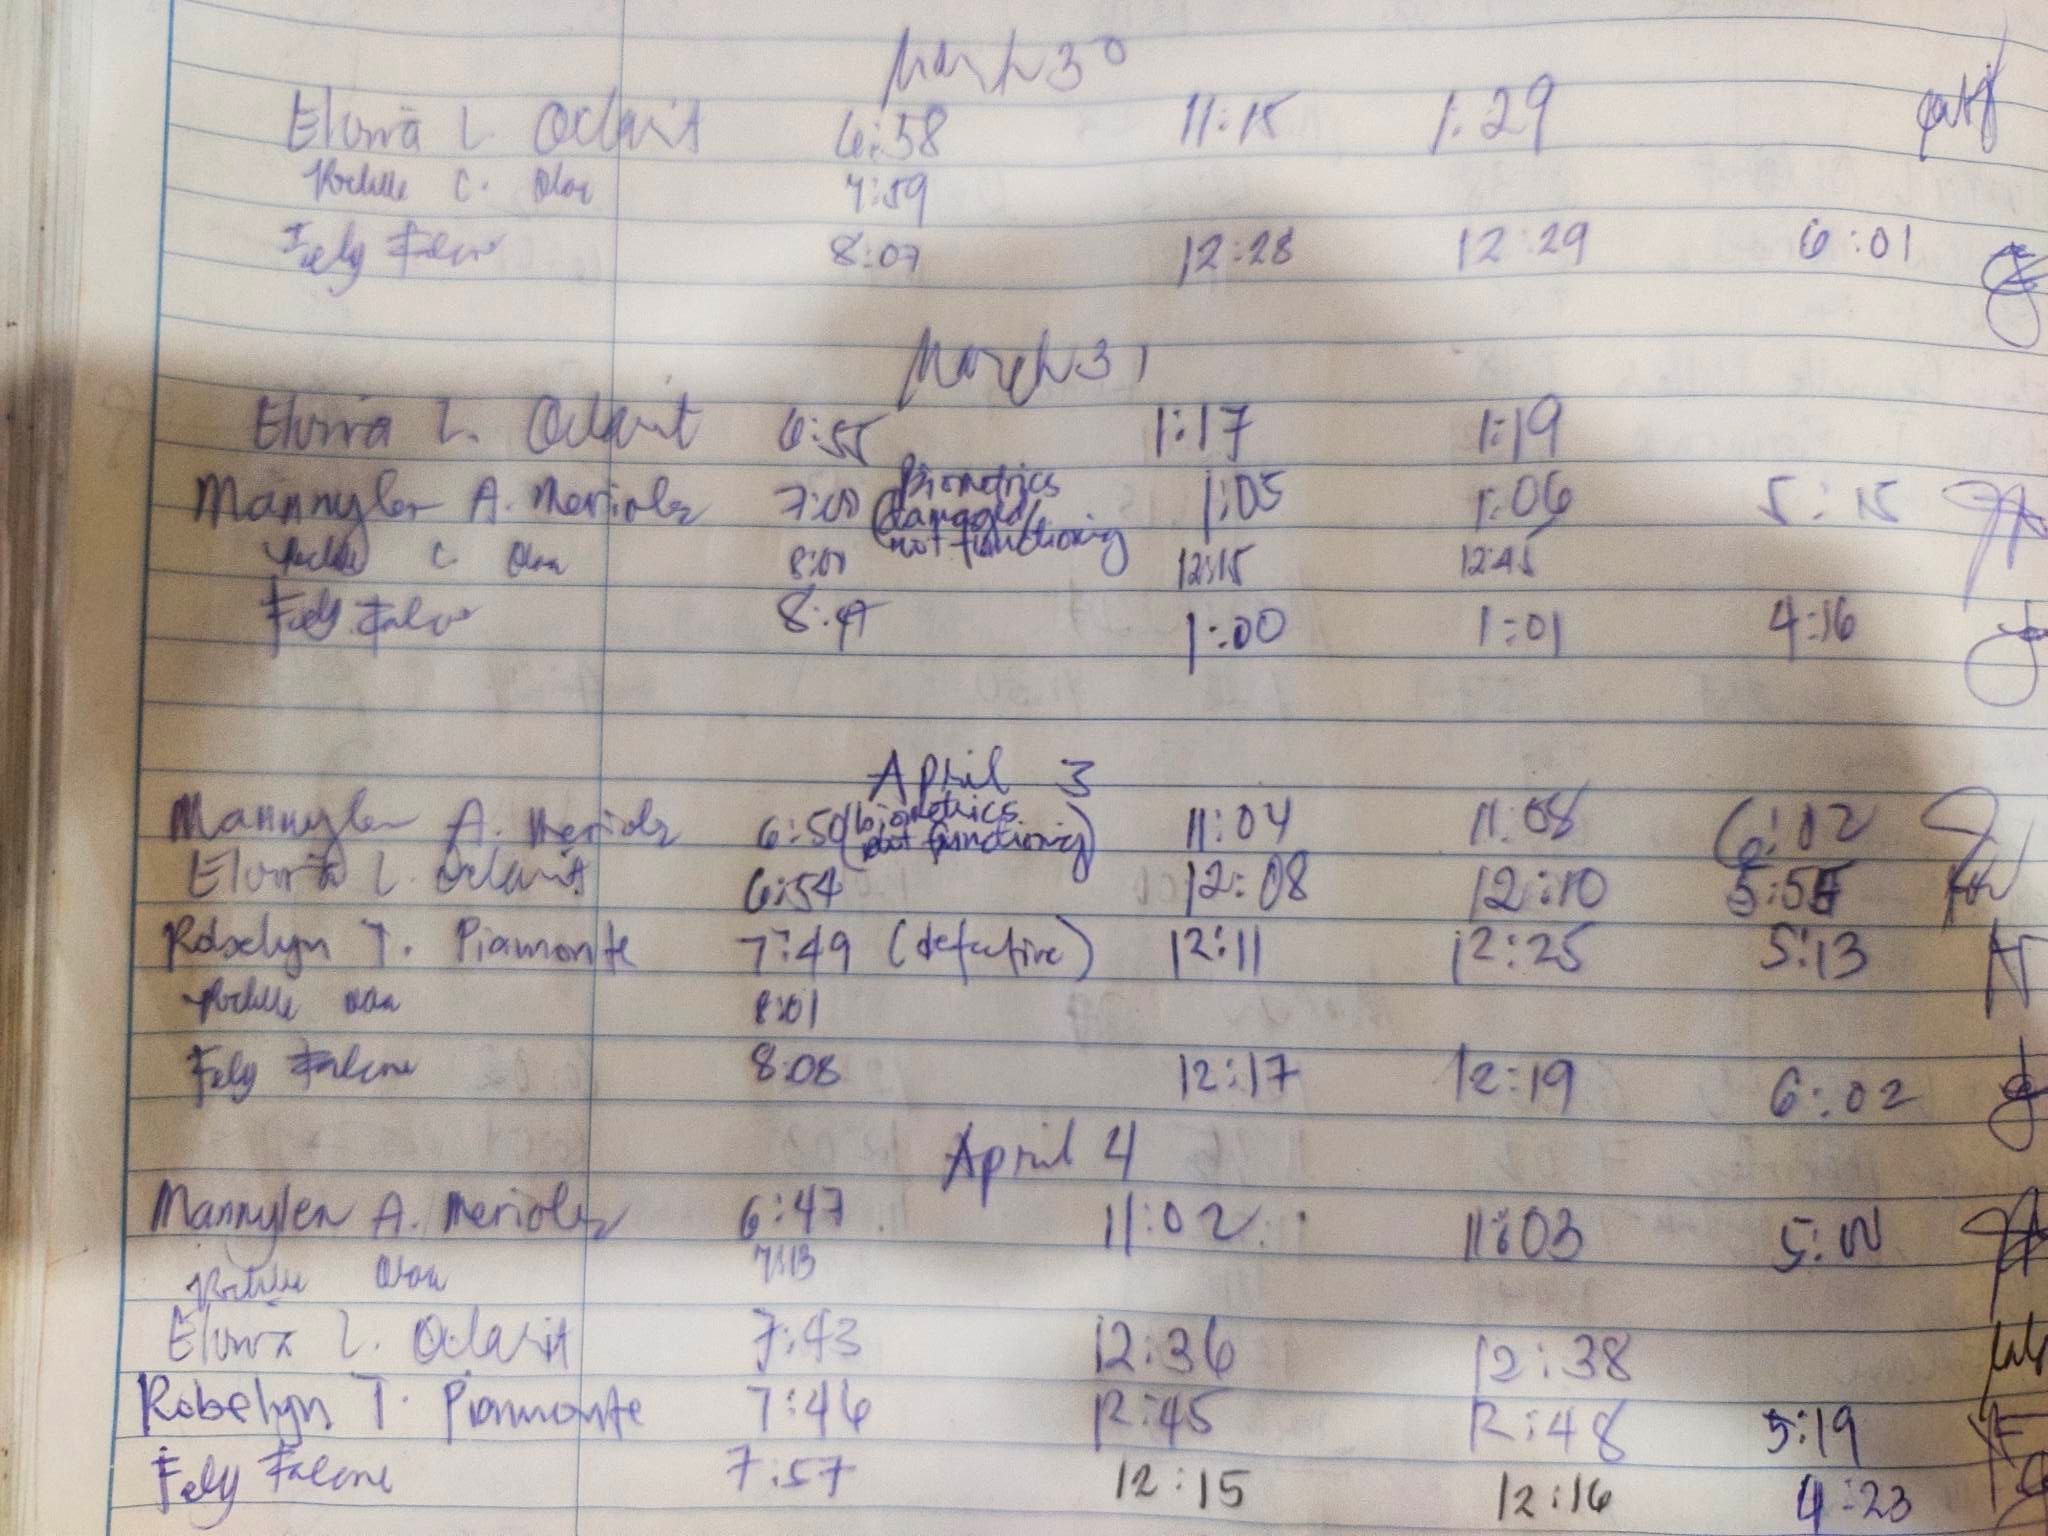 March 30
Elvira L. Oclarit 6:58 11:15 1:29
C. 7:59
Fely 8:07 12:28 12:29 6:01
March 31
Elvira L. Oclarit 6:55 1:17 1:19
Mannylen A. Merioles 7:00 (Biometrics damaged/ not functioning 1:05 1:06 5:15
C. 8:00 12:15 12:45
Fely 1:00 1:01 4:16
April 3
Mannylen A. Merioles 6:50 (biometrics not functioning) 11:04 11:08 6:02
Elvira L. Oclarit 6:54 12:08 12:10
Robelyn T. Piamonte 7:49 (defective) 12:11 12:25 5:13
8:01
Fely Falcone 8:08 12:17 12:19 6:02
April 4
Mannylen A. Merioles 6:47 11:02 11:03 5:00
7:13
Elvira L. Oclarit 7:43 12:36 12:38
Robelyn T. Piamonte 7:46 12:45 12:48 5:19
Fely Falcone 7:57 12:15 12:16 4:23